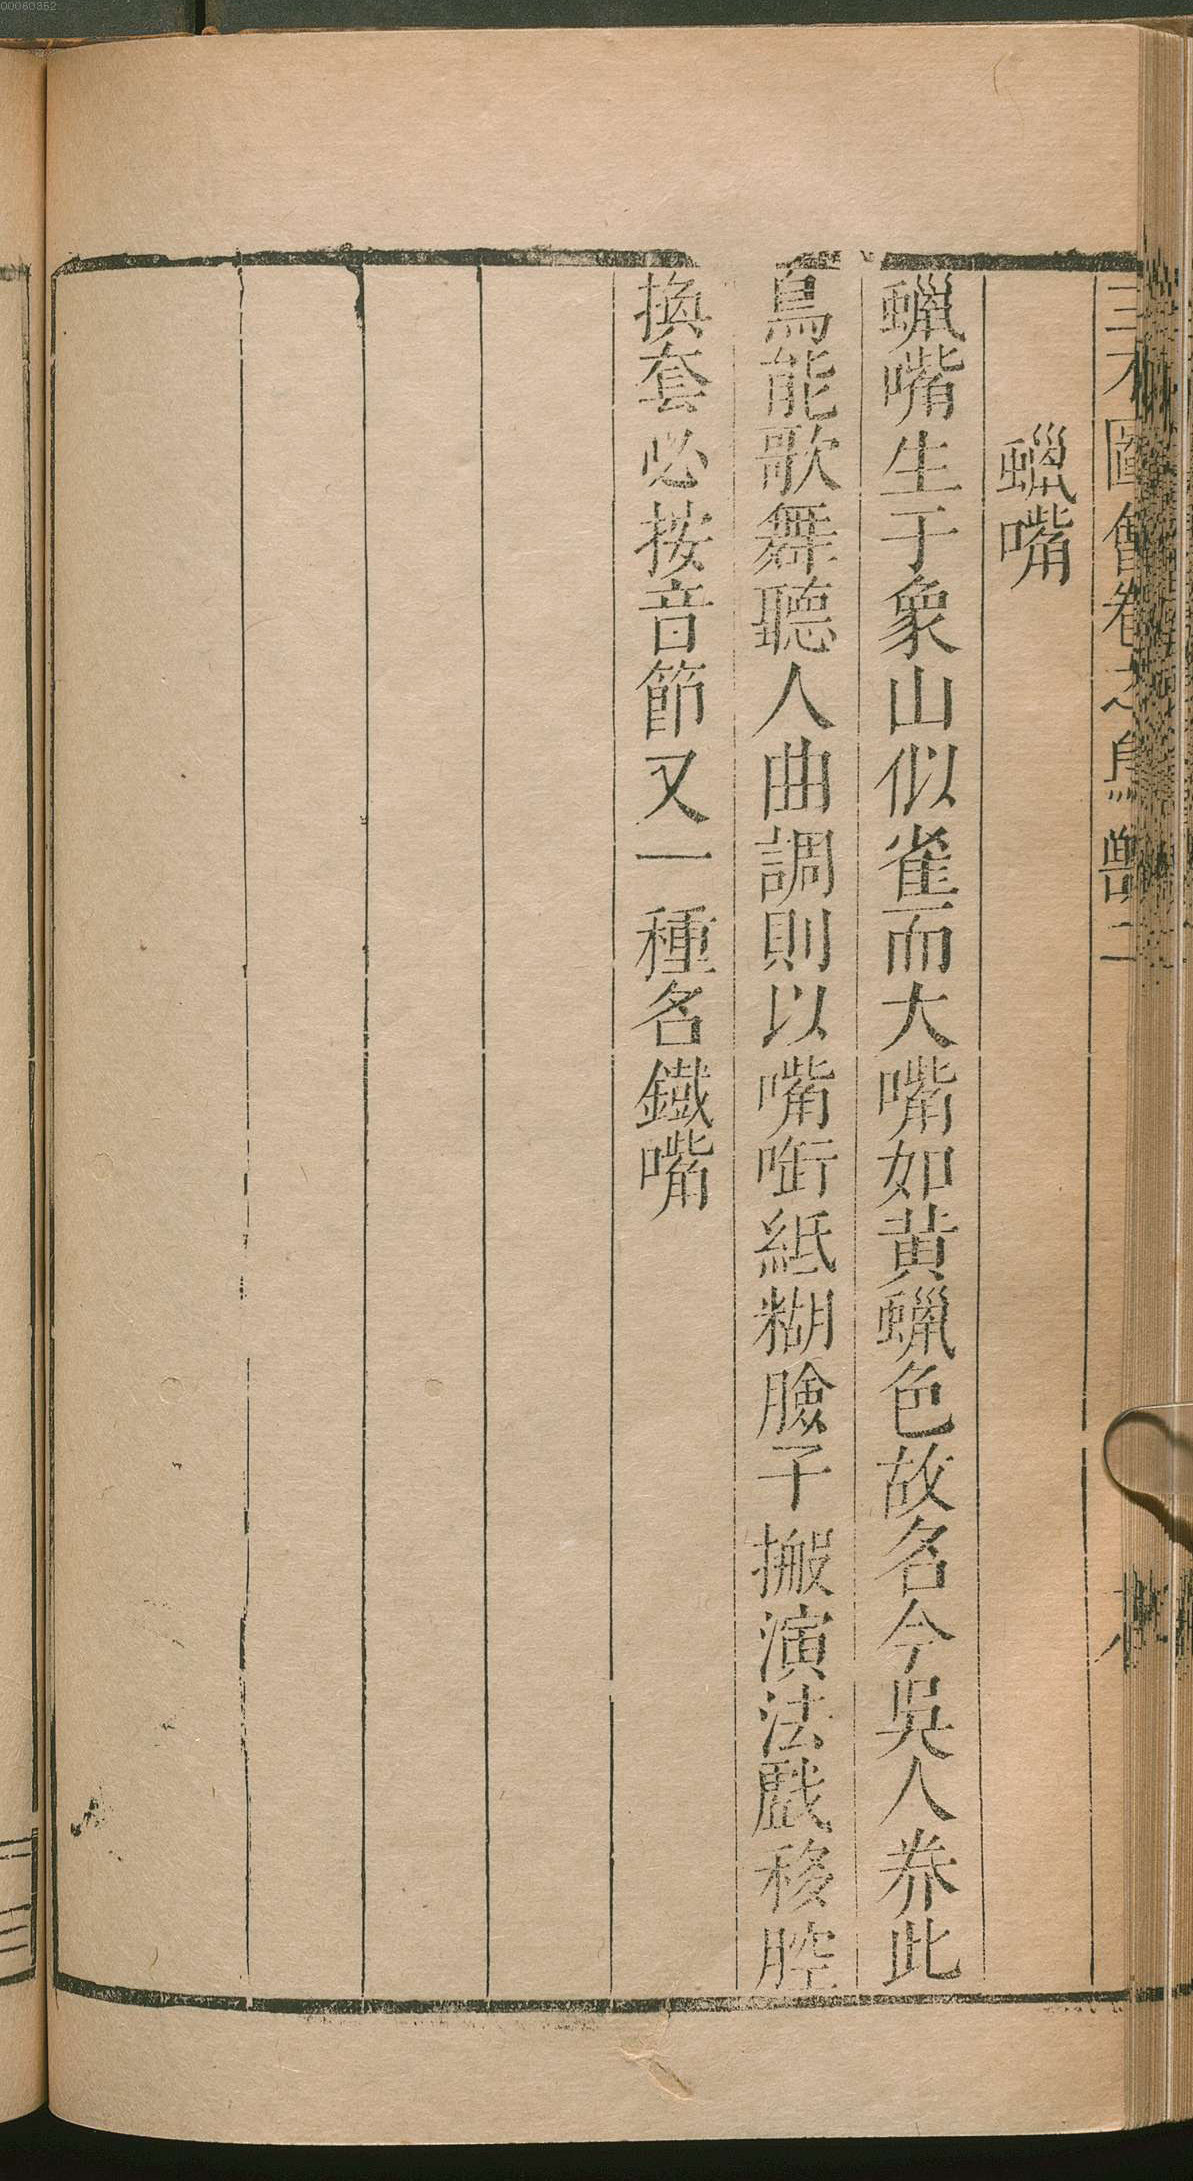 00060352
三才圖會卷之鳥獸二
蠟嘴
蠟嘴生于象山似雀而大嘴如黃蠟色故名今吳人养此
鳥能歌舞聽人曲調則以嘴啣紙糊臉子搬演法戲移腔
換套必按音節又一種名鐵嘴